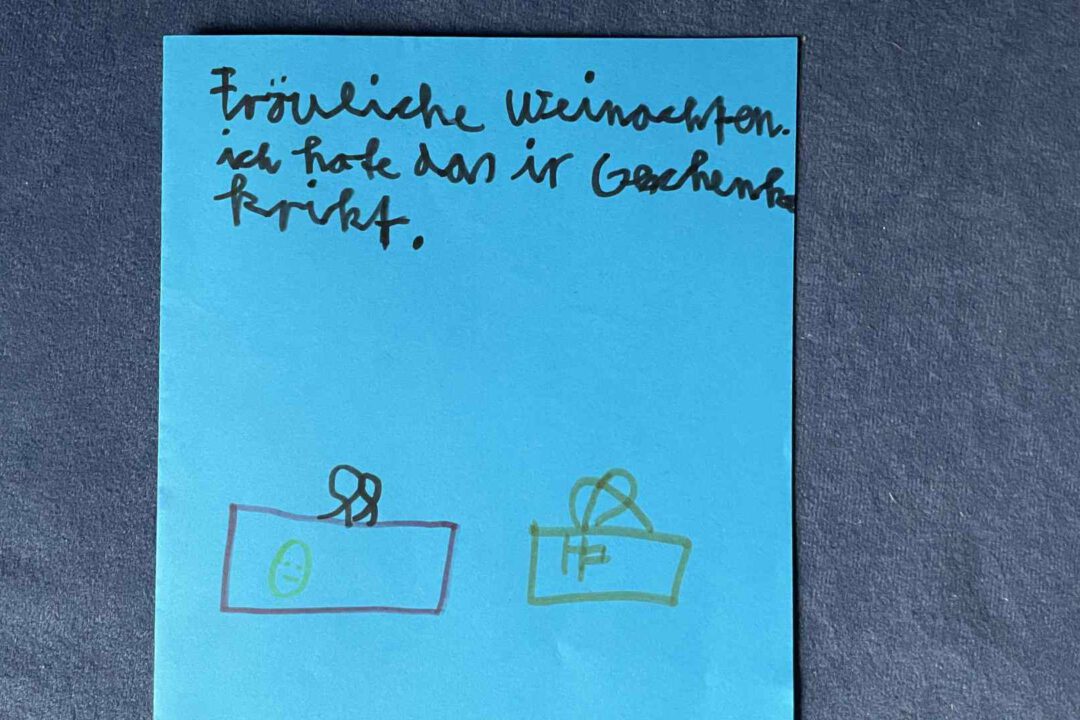 Fröuliche Weinachten.
ich hofe das ir Geschenke
krikt.
HF